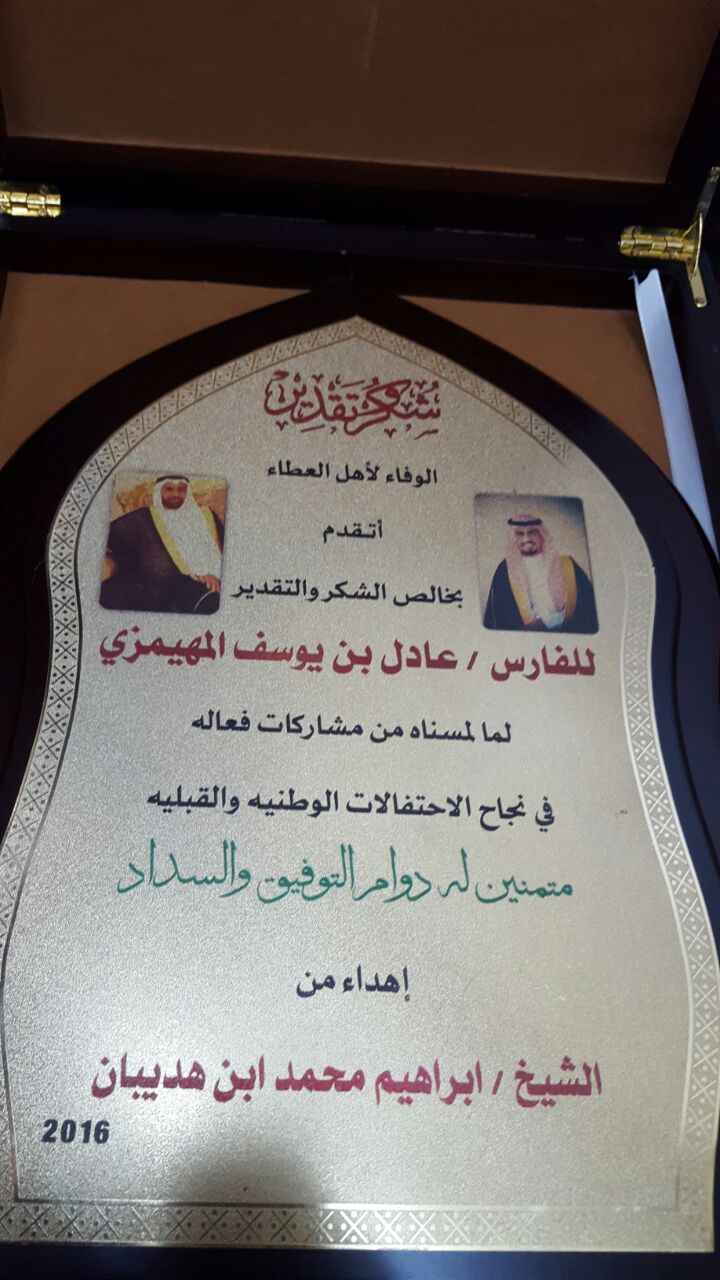 شكر وتقدير
الوفاء لأهل العطاء
أتقدم
بخالص الشكر والتقدير
للفارس / عادل بن يوسف المهيمزي
لما لمسناه من مشاركات فعاله
في نجاح الاحتفالات الوطنيه والقبليه
متمنين له دوام التوفيق والسداد
إهداء من
الشيخ / ابراهيم محمد ابن هديبان
2016